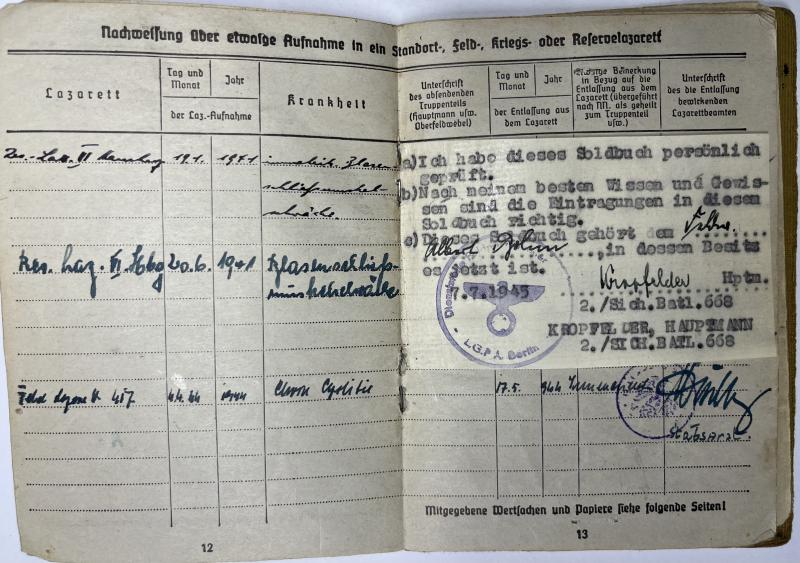 Nachweisung über etwaige Aufnahme in ein Standort-, Feld-, Kriegs- oder Reservelazarett
Lazarett
Tag und Monat
Jahr
der Laz.-Aufnahme
Krankheit
Unterschrift
des absendenden
Truppenteils
(Hauptmann usw.
Oberfeldwebel)
Tag und
Monat
Jahr
der Entlassung aus
dem Lazarett
Bemerkung
in Bezug auf die
Entlassung aus dem
Lazarett (übergeführt
nach M. als geheilt
zum Truppenteil
usw.)
Unterschrift
des die Entlassung
bewirkenden
Lazarettbeamten
Res.-Laz. VI Hamburg 19.1. 1941
schließmuskel-
schwäche.
Res. Laz. VI Hbg 20.6. 1941 Blasenschließ-
muskelschwäche
a)Ich habe dieses Soldbuch persönlich
geprüft.
b)Nach meinem besten Wissen und Gewis-
sen sind die Eintragungen in diesem
Soldbuch richtig.
c)Dieses Soldbuch gehört dem
Albert ,in dessen Besitz
es jetzt ist.
7.7.1945 Kropfelder Hptm.
2./Sich.Batl.668
KROPFELDER, HAUPTMANN
2./SICH.BATL.668
L.G.P.A. Berlin
Feld 4.4.44 1944 Chron Cystitis 17.5. 944
Stabsarzt.
Mitgegebene Wertsachen und Papiere siehe folgende Seiten!
12
13